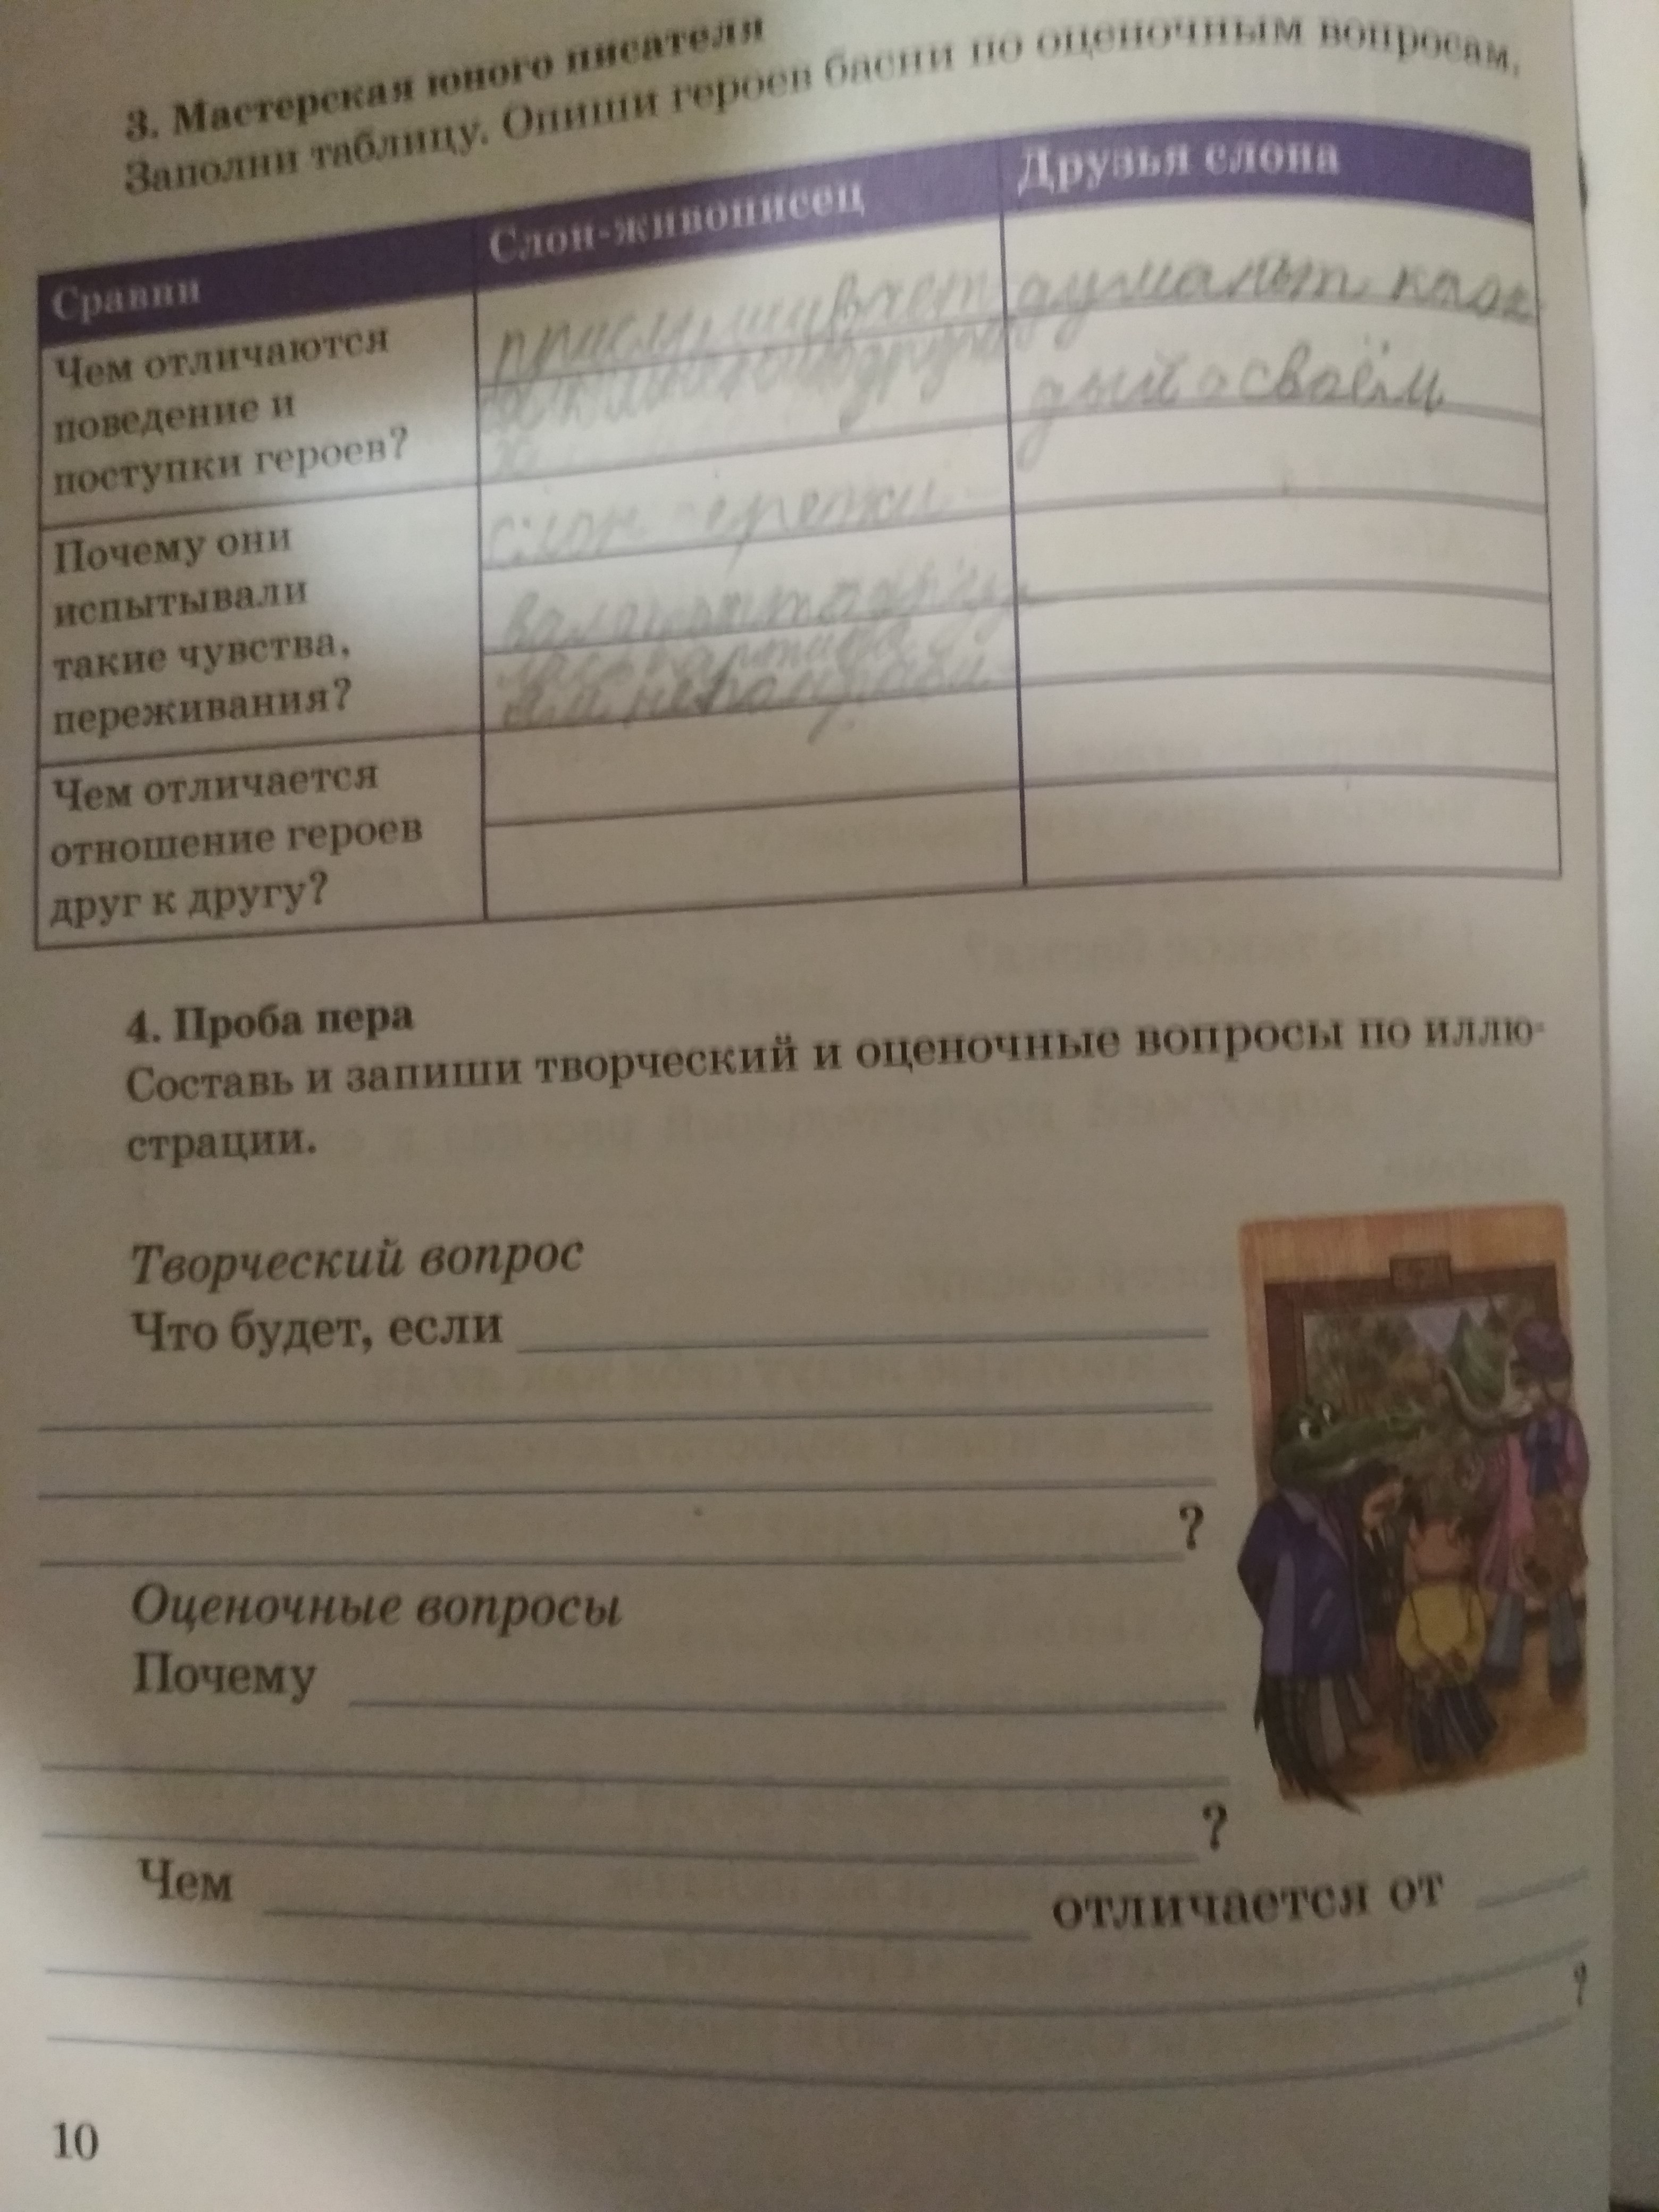 3. Мастерская юного писателя
Заполни таблицу. Опиши героев басни по оценочным вопросам.
Сравни
Слон-живописец
Друзья слона
Чем отличаются
поведение и
поступки героев?
прислушивается
думают каж
дый о своём
Почему они
испытывали
такие чувства,
переживания?
слон пережи
вал
не понрави
Чем отличается
отношение героев
друг к другу?
4. Проба пера
Составь и запиши творческий и оценочные вопросы по иллю-
страции.
Творческий вопрос
Что будет, если
?
Оценочные вопросы
Почему
?
Чем отличается от
?
10